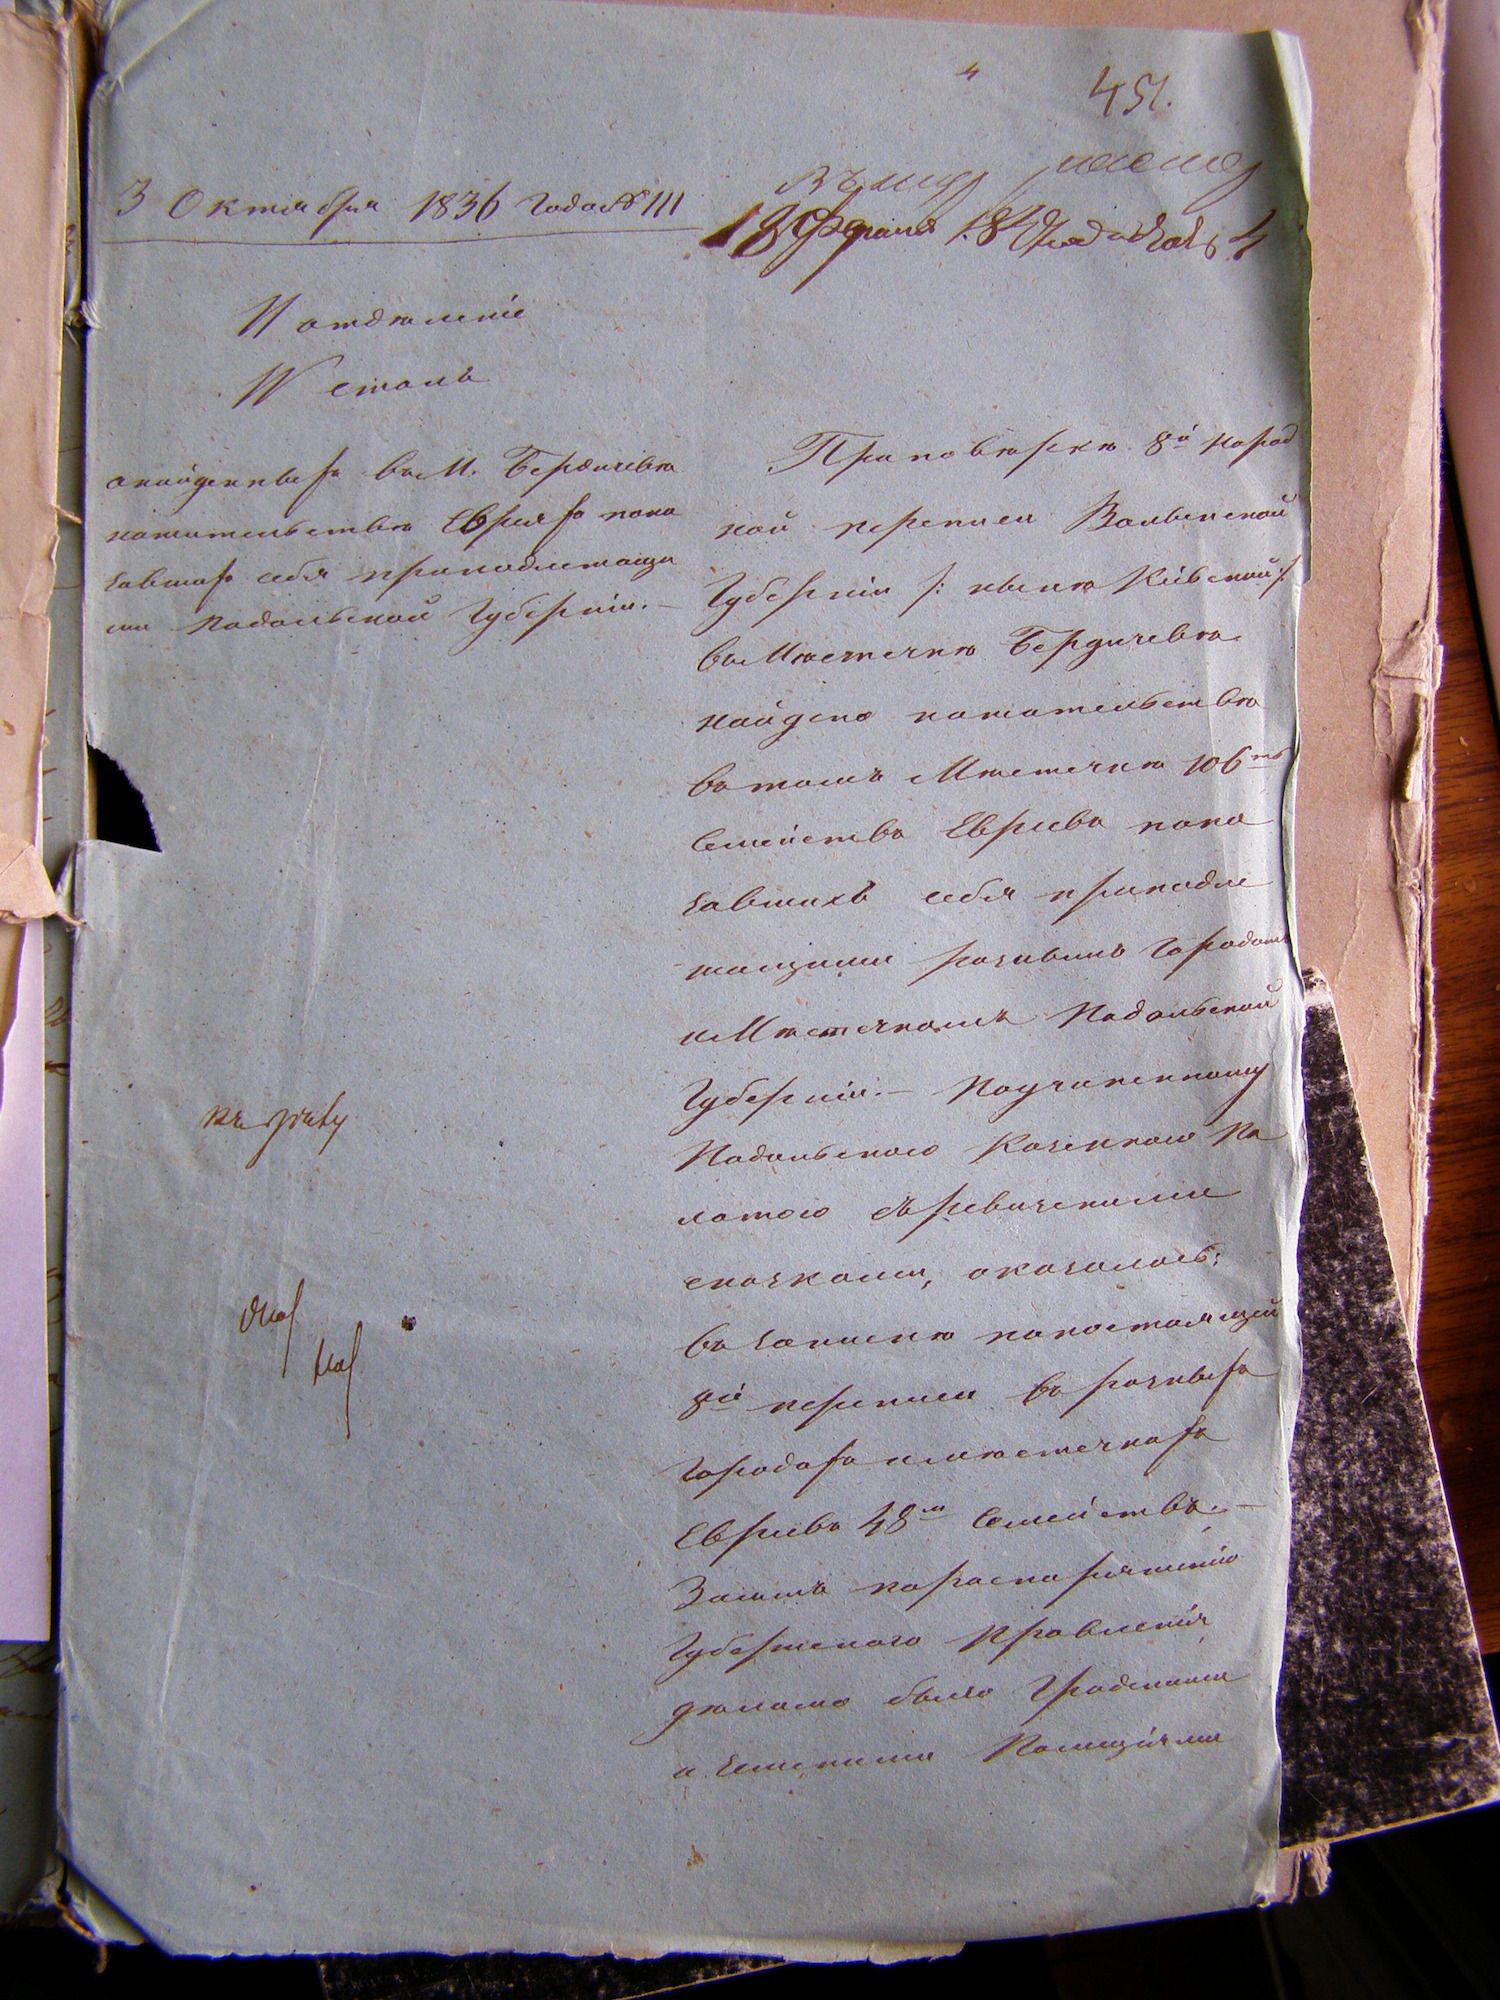 4
451.
3 Октября 1836 года № 111
18 Февраля
II отделеніе
IV столъ
о найденныхъ въ М. Бердичевѣ
на жительствѣ Евреяхъ пока
завшихъ себя принадлежащи
ми Подольской Губерніи. —
При повѣркѣ 8й народ
ной переписи Волынской
Губерніи /: нынѣ Кіевской :/
въ Мѣстечкѣ Бердичевѣ
найдено на жительствѣ
въ томъ Мѣстечкѣ 106ть
Семействъ Евреевъ пока
завшихъ себя принадле
жащими разнымъ Городамъ
и Мѣстечкамъ Подольской
Губерніи. — По учиненному
Подольскою Казенною Па
латою съ ревизскими
сказками, оказалось:
въ запискѣ по настоящей
8й переписи въ разныхъ
Городахъ и мѣстечкахъ
Евреевъ 48м Семействъ. —
Затѣмъ по распоряженію
Губернскаго Правленія
дѣлано было Градскими
и Земскими Полиціями